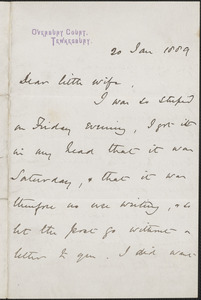 OVERBURY COURT,
TEWKESBURY.
20 Jan 1889
Dear little wife.
I was so stupid
on Friday evening, I got it
in my head that it was
Saturday, & that it was
therefore no use writing, & so
let the post go without a
letter to you. I did want